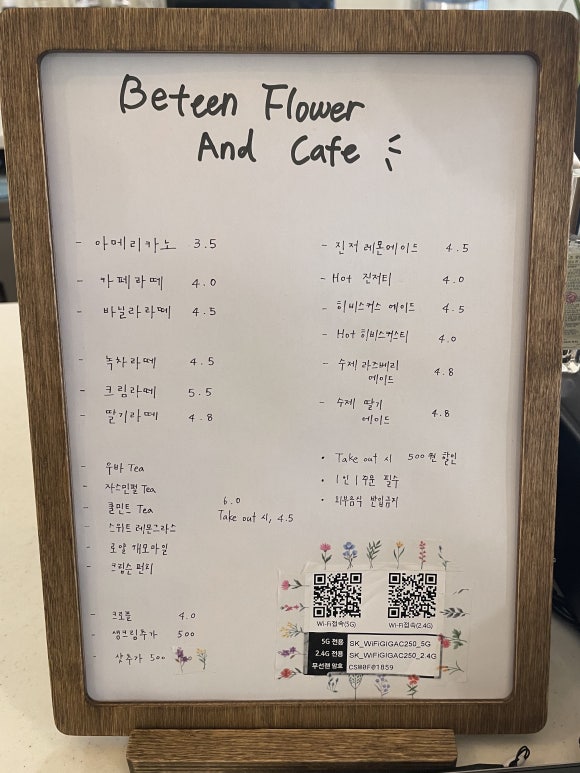 Beteen Flower
And Cafe
- 아메리카노 3.5
- 카페라떼 4.0
- 바닐라라떼 4.5
- 녹차라떼 4.5
- 크림라떼 5.5
- 딸기라떼 4.8
- 우바 Tea
- 자스민펄 Tea
- 쿨민트 Tea
- 스위트 레몬그라스
- 로얄 캐모마일
- 크림슨 펀치
6.0
Take out 시, 4.5
- 크로플 4.0
- 생크림추가 500
- 샷추가 500
- 진저 레몬에이드 4.5
- Hot 진저티 4.0
- 히비스커스 에이드 4.5
- Hot 히비스커스티 4.0
- 수제 라즈베리
에이드 4.8
- 수제 딸기
에이드 4.8
• Take out 시 500원 할인
• 1인 1주문 필수
• 외부음식 반입금지
Wi-Fi접속(5G) Wi-Fi접속(2.4G)
5G 전용 SK_WiFiGIGAC250_5G
2.4G 전용 SK_WiFiGIGAC250_2.4G
무선랜 암호 CSM0F@1859